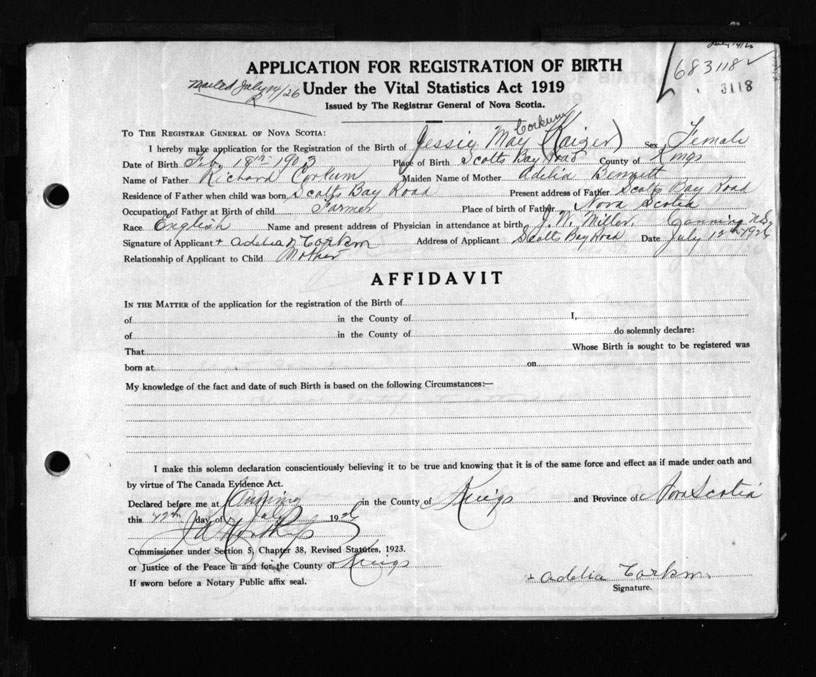 July 14/26
APPLICATION FOR REGISTRATION OF BIRTH
683118
Mailed July 14/26
Under the Vital Statistics Act 1919
3118
Issued by The Registrar General of Nova Scotia.
TO THE REGISTRAR GENERAL OF NOVA SCOTIA:
Corkum
I hereby make application for the Registration of the Birth of Jessie May (Kaizer) Sex Female
Date of Birth Feb. 18th 1903 Place of Birth Scotts Bay Road County of Kings
Name of Father Richard Corkum Maiden Name of Mother Adelia Bennett
Residence of Father when child was born Scotts Bay Road Present address of Father Scotts Bay Road
Occupation of Father at Birth of child Farmer Place of birth of Father Nova Scotia
Race English Name and present address of Physician in attendance at birth J. W. Miller. Canning N.S.
Signature of Applicant + Adelia Corkm Address of Applicant Scotts Bay Road Date July 12th 1926
Relationship of Applicant to Child Mother
AFFIDAVIT
IN THE MATTER of the application for the registration of the Birth of
of in the County of I,
of in the County of do solemnly declare:
That Whose Birth is sought to be registered was
born at on
My knowledge of the fact and date of such Birth is based on the following Circumstances:—
I make this solemn declaration conscientiously believing it to be true and knowing that it is of the same force and effect as if made under oath and
by virtue of The Canada Evidence Act.
Declared before me at Canning in the County of Kings and Province of Nova Scotia
this day of July 1926
Commissioner under Section 5, Chapter 38, Revised Statutes, 1923.
or Justice of the Peace in and for the County of Kings
If sworn before a Notary Public affix seal.
+ Adelia Corkm
Signature.